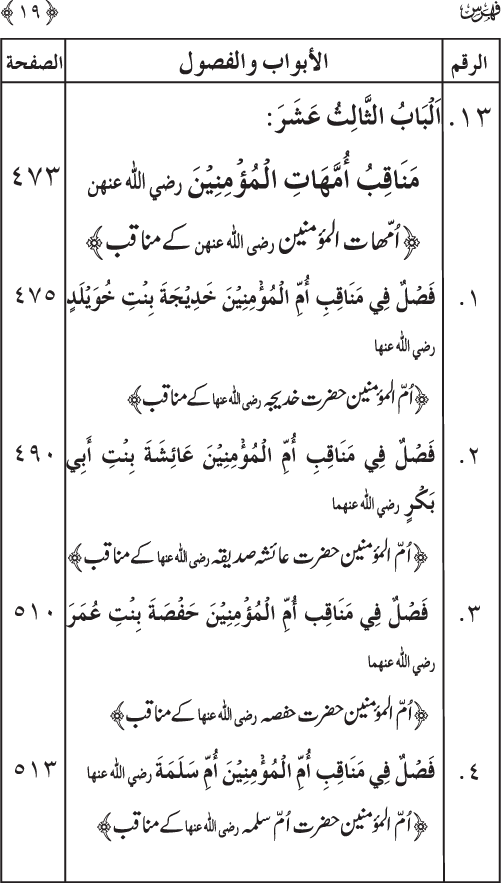 فہرس ﴿١٩﴾
الرقم الأبواب والفصول الصفحة
١٣. اَلْبَابُ الثَّالِثُ عَشَرَ:
مَنَاقِبُ أُمَّهَاتِ الْمُؤْمِنِيْنَ رضي الله عنهن ٤٧٣
﴿اُمّہات المؤمنین رضي الله عنهن کے مناقب﴾
١. فَصْلٌ فِي مَنَاقِبِ أُمِّ الْمُؤْمِنِيْنَ خَدِيْجَةَ بِنْتِ خُوَيْلَدٍ ٤٧٥
رضي الله عنها
﴿اُمّ المؤمنین حضرت خدیجہ رضي الله عنها کے مناقب﴾
٢. فَصْلٌ فِي مَنَاقِبِ أُمِّ الْمُؤْمِنِيْنَ عَائِشَةَ بِنْتِ أَبِي ٤٩٠
بَكْرٍ رضي الله عنهما
﴿اُمّ المؤمنین حضرت عائشہ صدیقہ رضي الله عنها کے مناقب﴾
٣. فَصْلٌ فِي مَنَاقِب أُمِّ الْمُؤْمِنِيْنَ حَفْصَةَ بِنْتِ عُمَرَ ٥١٠
رضي الله عنهما
﴿اُمّ المؤمنین حضرت حفصہ رضي الله عنها کے مناقب﴾
٤. فَصْلٌ فِي مَنَاقِبِ أُمِّ الْمُؤْمِنِيْنَ أُمِّ سَلَمَةَ رضي الله عنها ٥١٣
﴿اُمّ المؤمنین حضرت اُمّ سلمہ رضي الله عنها کے مناقب﴾